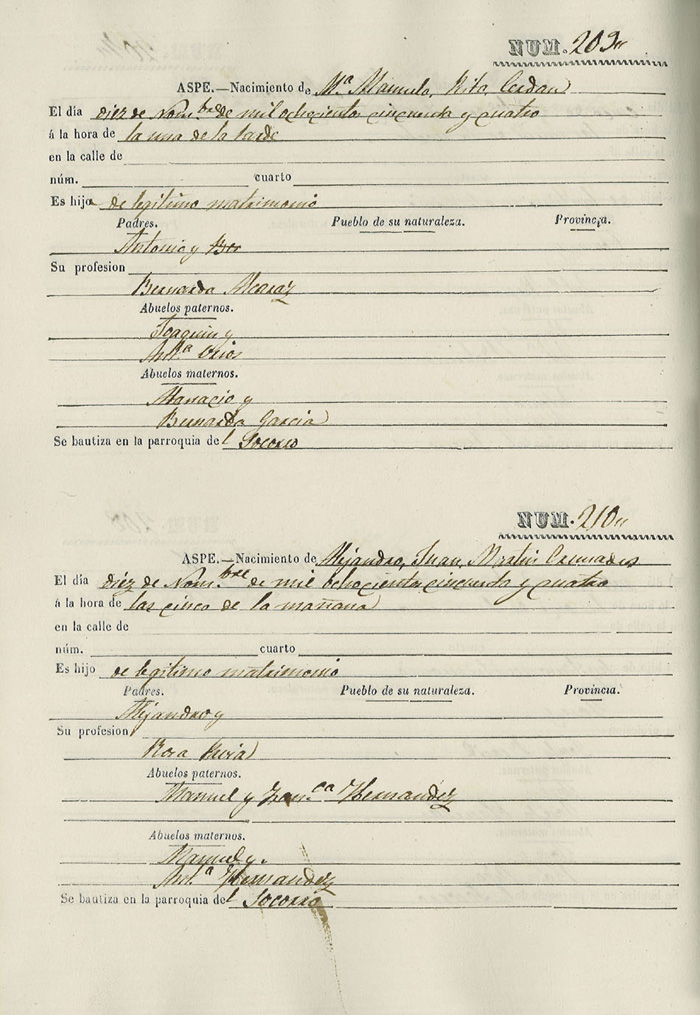 NUM. 209
ASPE.—Nacimiento de Mª Manuela, Rita Cerdan
El día diez de Nombre de mil ochocientos cincuenta y cuatro
á la hora de la una de la tarde
en la calle de
núm. cuarto
Es hija de legitimo matrimonio
Padres. Pueblo de su naturaleza. Provincia.
Antonio y
Su profesion
Bernarda Alcaraz
Abuelos paternos.
Joaquin y
Antª
Abuelos maternos.
Manacio y
Bernarda Garcia
Se bautiza en la parroquia del Socorro
NUM. 210
ASPE.—Nacimiento de Alejandro, Juan, Martin Cremades
El día diez de Nombre de mil ochocientos cincuenta y cuatro
á la hora de las cinco de la mañana
en la calle de
núm. cuarto
Es hijo de legitimo matrimonio
Padres. Pueblo de su naturaleza. Provincia.
Alejandro y
Su profesion
Rosa
Abuelos paternos.
Manuel y Franca Hernandez
Abuelos maternos.
Manuel y
Antª Hernandez
Se bautiza en la parroquia del Socorro